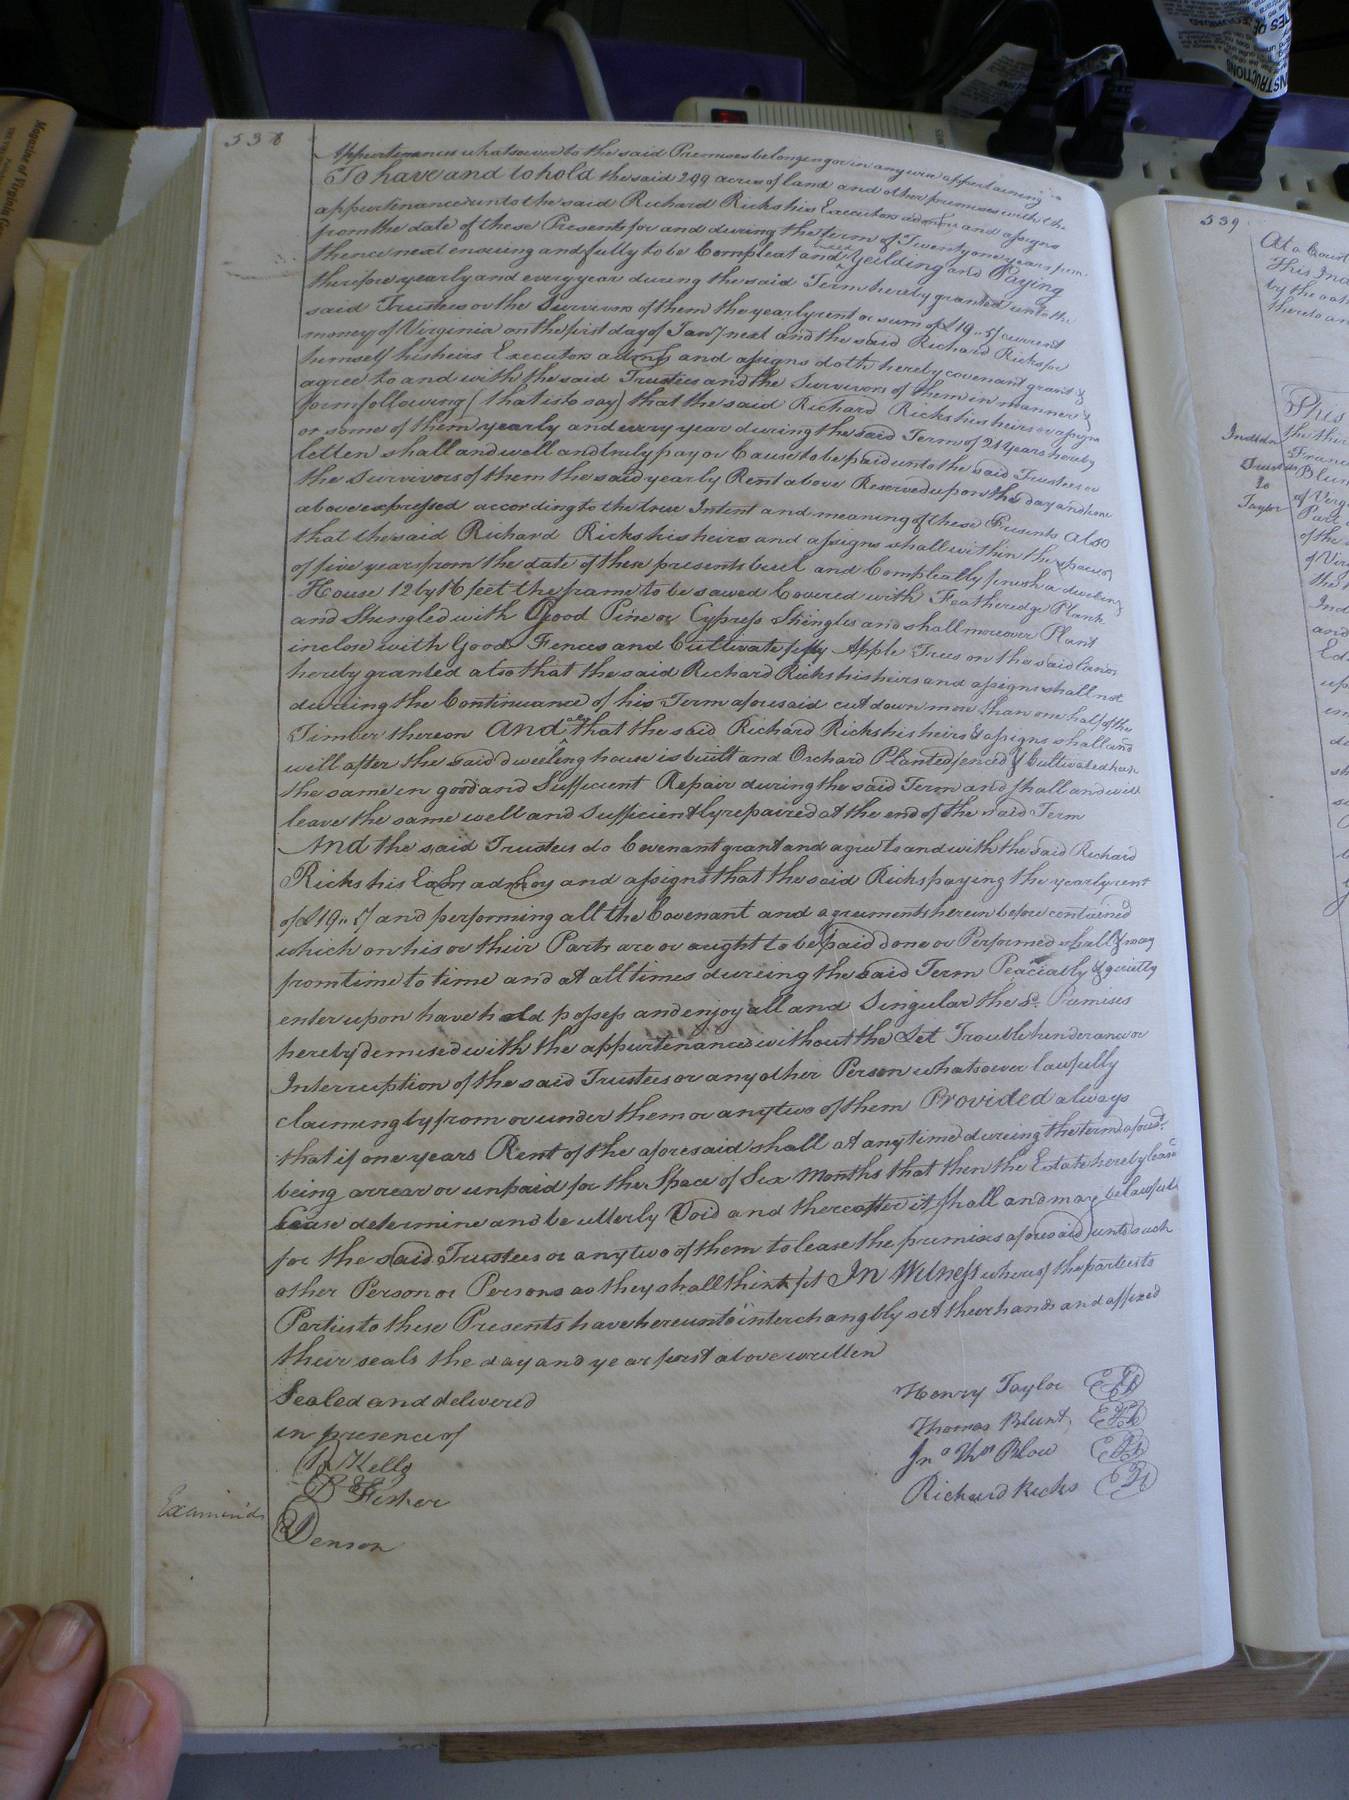 538
Appurtenances whatsoever to the said Premises belonging or in any wise appertaining
To have and to hold the said 299 acres of land and other premises with the
appurtenances unto the said Richard Ricks his Executors admrs and assigns
from the date of these Presents for and during the term of Twenty one years from
thence next ensuing and fully to be Compleat and ended Yeilding and Paying
therefore yearly and every year during the said Term hereby granted unto the
said Trustees or the Survivors of them the yearly rent or sum of £19..5/ current
money of Virginia on the first day of Jany next and the said Richard Ricks for
himself his heirs Executors admrs and assigns doth hereby covenant grant &
agree to and with the said Trustees and the Survivors of them in manner &
form following (that is to say) that the said Richard Ricks his heirs or assigns
or some of them yearly and every year during the said Term of 21 years hereby
letten shall and well and truly pay or Cause to be paid unto the said Trustees or
the Survivors of them the said yearly Rent above Reserved upon the day and
above expressed according to the true Intent and meaning of these Presents also
that the said Richard Ricks his heirs and assigns shall within the space
of five years from the date of these presents buil and Compleatly finish a dwelling
House 12 by 16 feet the frame to be sawed Covered with Featheredge Plank
and Shengled with Good Pine or Cypress Shingles and shall moreover Plant
inclose with Good Fences and Cultivate fifty Apple Trees on the said Lands
hereby granted also that the said Richard Ricks his heirs and assigns shall not
dureing the Continuance of his Term aforesaid cut down more than one half of the
Timber thereon And also that the said Richard Ricks his heirs & assigns shall and
will after the said dweeling house is built and Orchard Planted fenced & Cultivated
the same in good and Sufficient Repair during the said Term and shall and will
leave the same well and sufficiently repaired at the end of the said Term
And the said Trustees do Covenant grant and agree to and with the said Richard
Ricks his Exrs admrs and assigns that the said Ricks paying the yearly rent
of £19..5/ and performing all the Covenant and agreements herein before contained
which on his or their Parts are or aught to be paid done or Performed shall & may
from time to time and at all times dureing the said Term Peaciably & quietly
enter upon have hold possess and enjoy all and Singular the sd. Premises
hereby demised with the appurtenances without the Let Trouble henderance or
Interruption of the said Trustees or any other Person whatsoever lawfully
claiming by from or under them or any two of them Provided always
that if one years Rent of the aforesaid shall at any time dureing the term aforesd.
being arrear or unpaid for the Space of Six Months that then the Estate hereby
Cease determine and be utterly Void and thereafter it shall and may be lawfull
for the said Trustees or any two of them to lease the premises aforesaid unto such
other Person or Persons as they shall think fit In Witness whereof the parties to
Parties to these Presents have hereunto interchangbly set their hands and affixed
their seals the day and year first above written
Sealed and delivered
in presence of
Kello
Fisher
Denson
Henry Taylor
Thomas Blunt
Jno Thos Blow
Richard Ricks
Examin'd
539
At a Court
This Ind
by the
thereto an
Indian
Trustees
to
Taylor
This
the thir
Franc
Blun
of Virg
Part
of the
of Vir
the
Ind
and